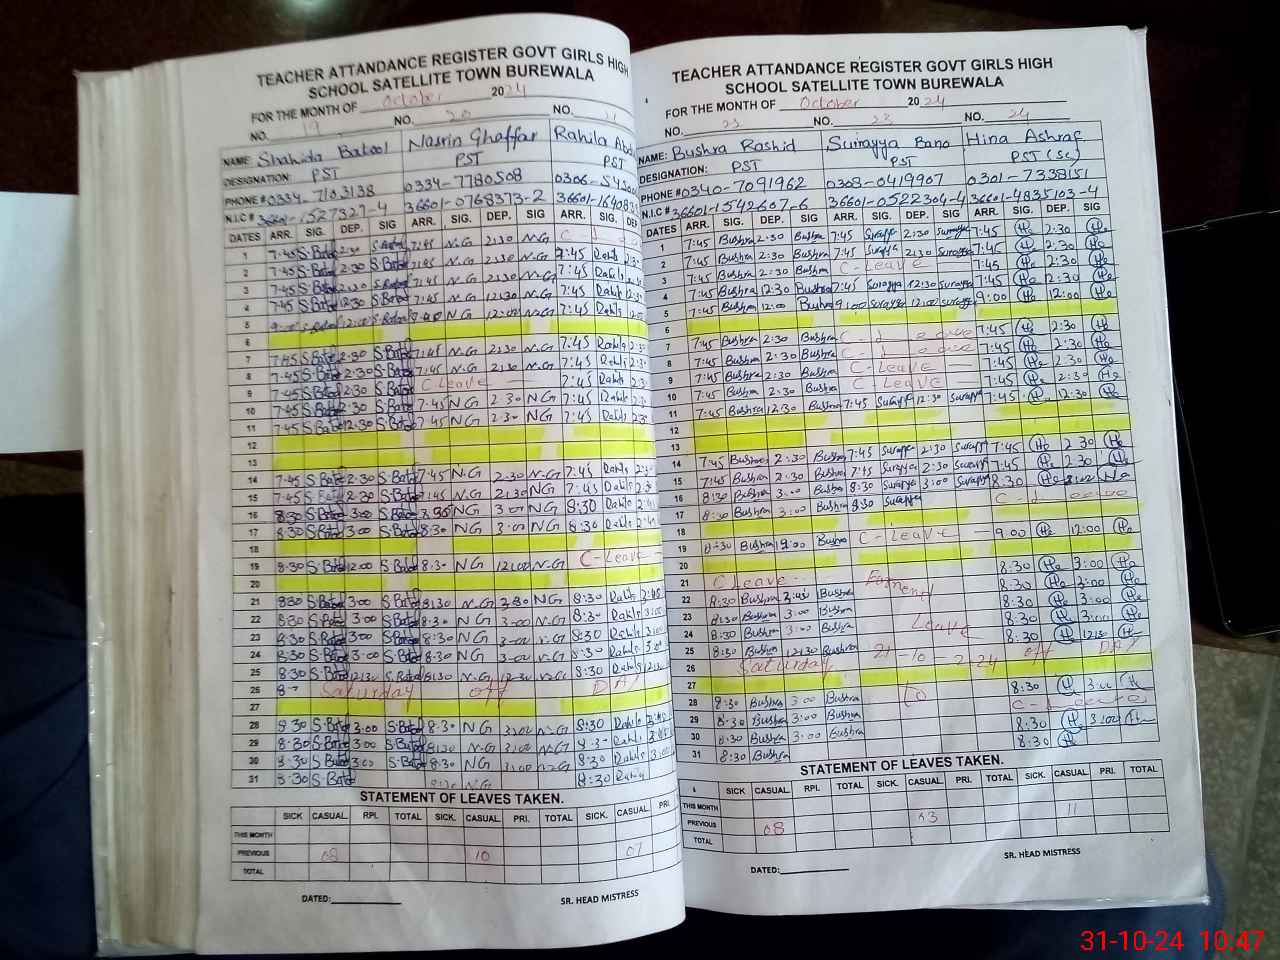 TEACHER ATTANDANCE REGISTER GOVT GIRLS HIGH
SCHOOL SATELLITE TOWN BUREWALA
FOR THE MONTH OF October 2024
NO. 19 NO. 20 NO. 21
NAME: Shahida Batool Nasrin Ghaffar Rahila
DESIGNATION: PST PST PST
PHONE # 0334-7103138 0334-7780508 0306-
N.I.C # 36601-1527327-4 36601-0768373-2 36601-
DATES ARR. SIG. DEP. SIG ARR. SIG. DEP. SIG ARR. SIG. DEP.
1 7:45 S.Batol 2:30 S.Batol 7:45 N.G 2:30 N.G
2 7:45 S.Batol 2:30 S.Batol 7:45 N.G 2:30 N.G 7:45 Rakhs
3 7:45 S.Batol 2:30 S.Batol 7:45 N.G 2:30 N.G 7:45 Rakhs
4 7:45 S.Batol 12:30 S.Batol 7:45 N.G 12:30 N.G 7:45 Rakhs
5 9:00 12:00 S.Batol N.G 12:00 N.G 7:45 Rakhs
6
7 7:45 S.Batol 2:30 S.Batol 7:45 N.G 2:30 N.G 7:45 Rakhs
8 7:45 S.Batol 2:30 S.Batol 7:45 N.G 2:30 N.G 7:45 Rakhs
9 7:45 S.Batol 2:30 S.Batol C Leave 7:45 Rakhs
10 7:45 S.Batol 2:30 S.Batol 7:45 NG 2:30 NG 7:45 Rakhs
11 7:45 S.Batol 12:30 S.Batol 7:45 NG NG 7:45 Rakhs
12
13
14 7:45 S.Batol 2:30 S.Batol 7:45 N.G 2:30 N.G 7:45 Rakhs
15 7:45 S.Batol 2:30 S.Batol 7:45 NG 2:30 NG 7:45 Rakhs
16 8:30 S.Batol 3:00 S.Batol 8:30 NG 3:00 NG 8:30 Rakhs
17 8:30 S.Batol 3:00 S.Batol 8:30 NG 3:00 NG 8:30 Rakhs
18
19 8:30 S.Batol 12:00 S.Batol 8:30 NG 12:00 N.G C-Leave
20
21 8:30 S.Batol 3:00 S.Batol 8:30 N.G NG 8:30 Rakhs
22 8:30 S.Batol 3:00 S.Batol 8:30 N.G 3:00 NG 8:30 Rakhs
23 8:30 S.Batol 3:00 S.Batol 8:30 NG 3:00 N.G 8:30 Rakhs
24 8:30 S.Batol 3:00 S.Batol 8:30 NG 3:00 N.G 8:30 Rakhs
25 8:30 S.Batol 12:30 S.Batol 8:30 NG 12:30 N.G 8:30 Rakhs
26 Saturday off DAY
27
28 8:30 S.Batol 3:00 S.Batol 8:30 NG 3:00 NG 8:30 Rakhs
29 8:30 S.Batol 3:00 S.Batol 8:30 N.G 3:00 N.G 8:30 Rakhs
30 8:30 S.Batol 3:00 S.Batol 8:30 NG 3:00 N.G 8:30 Rakhs
31 8:30 S.Batol 8:30 NG 8:30
STATEMENT OF LEAVES TAKEN.
SICK CASUAL RPI. TOTAL SICK. CASUAL PRI. TOTAL SICK. CASUAL PRI.
THIS MONTH
PREVIOUS 08 10 07
TOTAL
DATED: SR. HEAD MISTRESS
TEACHER ATTANDANCE REGISTER GOVT GIRLS HIGH
SCHOOL SATELLITE TOWN BUREWALA
FOR THE MONTH OF October 2024
NO. 22 NO. 23 NO. 24
NAME: Bushra Rashid Surayya Bano Hina Ashraf
DESIGNATION: PST PST PST (Sc)
PHONE # 0340-7091962 0308-0419907 0301-7338151
N.I.C # 36601-1542607-6 36601-0522304-4 36601-4835103-4
DATES ARR. SIG. DEP. SIG ARR. SIG. DEP. SIG ARR. SIG. DEP. SIG
1 7:45 Bushra 2:30 Bushra 7:45 Surayya 2:30 Surayya 7:45 He 2:30 He
2 7:45 Bushra 2:30 Bushra 7:45 Surayya 2:30 Surayya 7:45 He 2:30 He
3 7:45 Bushra 2:30 Bushra C-Leave 7:45 He 2:30 He
4 7:45 Bushra 12:30 Bushra 7:45 Surayya 12:30 Surayya 7:45 He 12:30 He
5 7:45 Bushra 12:00 Bushra 9:00 Surayya 12:00 Surayya 9:00 He 12:00 He
6
7 7:45 Bushra 2:30 Bushra C-Leave 7:45 He 2:30 He
8 7:45 Bushra 2:30 Bushra C-Leave 7:45 He 2:30 He
9 7:45 Bushra 2:30 Bushra C-Leave 7:45 He 2:30 He
10 7:45 Bushra 2:30 Bushra C LEAVE 7:45 He 2:30 He
11 7:45 Bushra 12:30 Bushra 7:45 Surayya 12:30 Surayya 7:45 He 12:30 He
12
13
14 7:45 Bushra 2:30 Bushra 7:45 Surayya 2:30 Surayya 7:45 He 2:30 He
15 7:45 Bushra 2:30 Bushra 7:45 Surayya 2:30 Surayya 7:45 He 2:30 He
16 8:30 Bushra 3:00 Bushra 8:30 Surayya 3:00 Surayya 8:30 He He
17 8:30 Bushra 3:00 Bushra 8:30 Surayya C-Leave
18
19 8:30 Bushra 12:00 Bushra C-Leave 9:00 He 12:00 He
20
21 C Leave 8:30 He 3:00 He
22 8:30 Bushra Bushra 8:30 He 3:00 He
23 8:30 Bushra 3:00 Bushra 8:30 He 3:00 He
24 8:30 Bushra 3:00 Bushra Leave 8:30 He 3:00 He
25 8:30 Bushra 12:30 Bushra 8:30 He 12:30 He
26 Saturday 21-10-2024 off DAY
27
28 8:30 Bushra 3:00 Bushra To 8:30 He 3:00 He
29 8:30 Bushra 3:00 Bushra C-Leave
30 8:30 Bushra 3:00 Bushra 8:30 He 3:00 He
31 8:30 Bushra 8:30 He
STATEMENT OF LEAVES TAKEN.
SICK CASUAL RPI. TOTAL SICK. CASUAL PRI. TOTAL SICK. CASUAL PRI. TOTAL
THIS MONTH
PREVIOUS 08 11
TOTAL
DATED: SR. HEAD MISTRESS
31-10-24 10:47